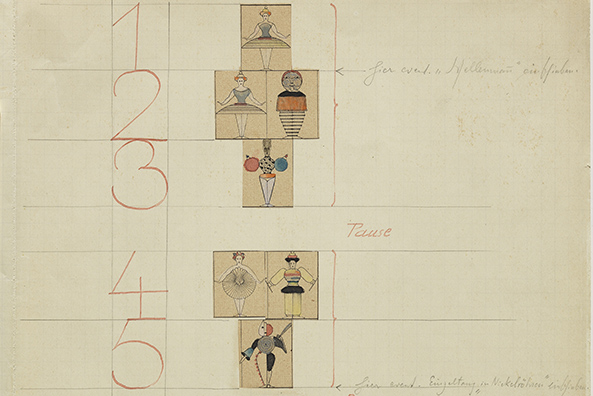 1
2
hier event. "Wellenmann" einschieben.
3
Pause
4
5
hier event. Einzeltanz in "Nickelröhren" einschieben.